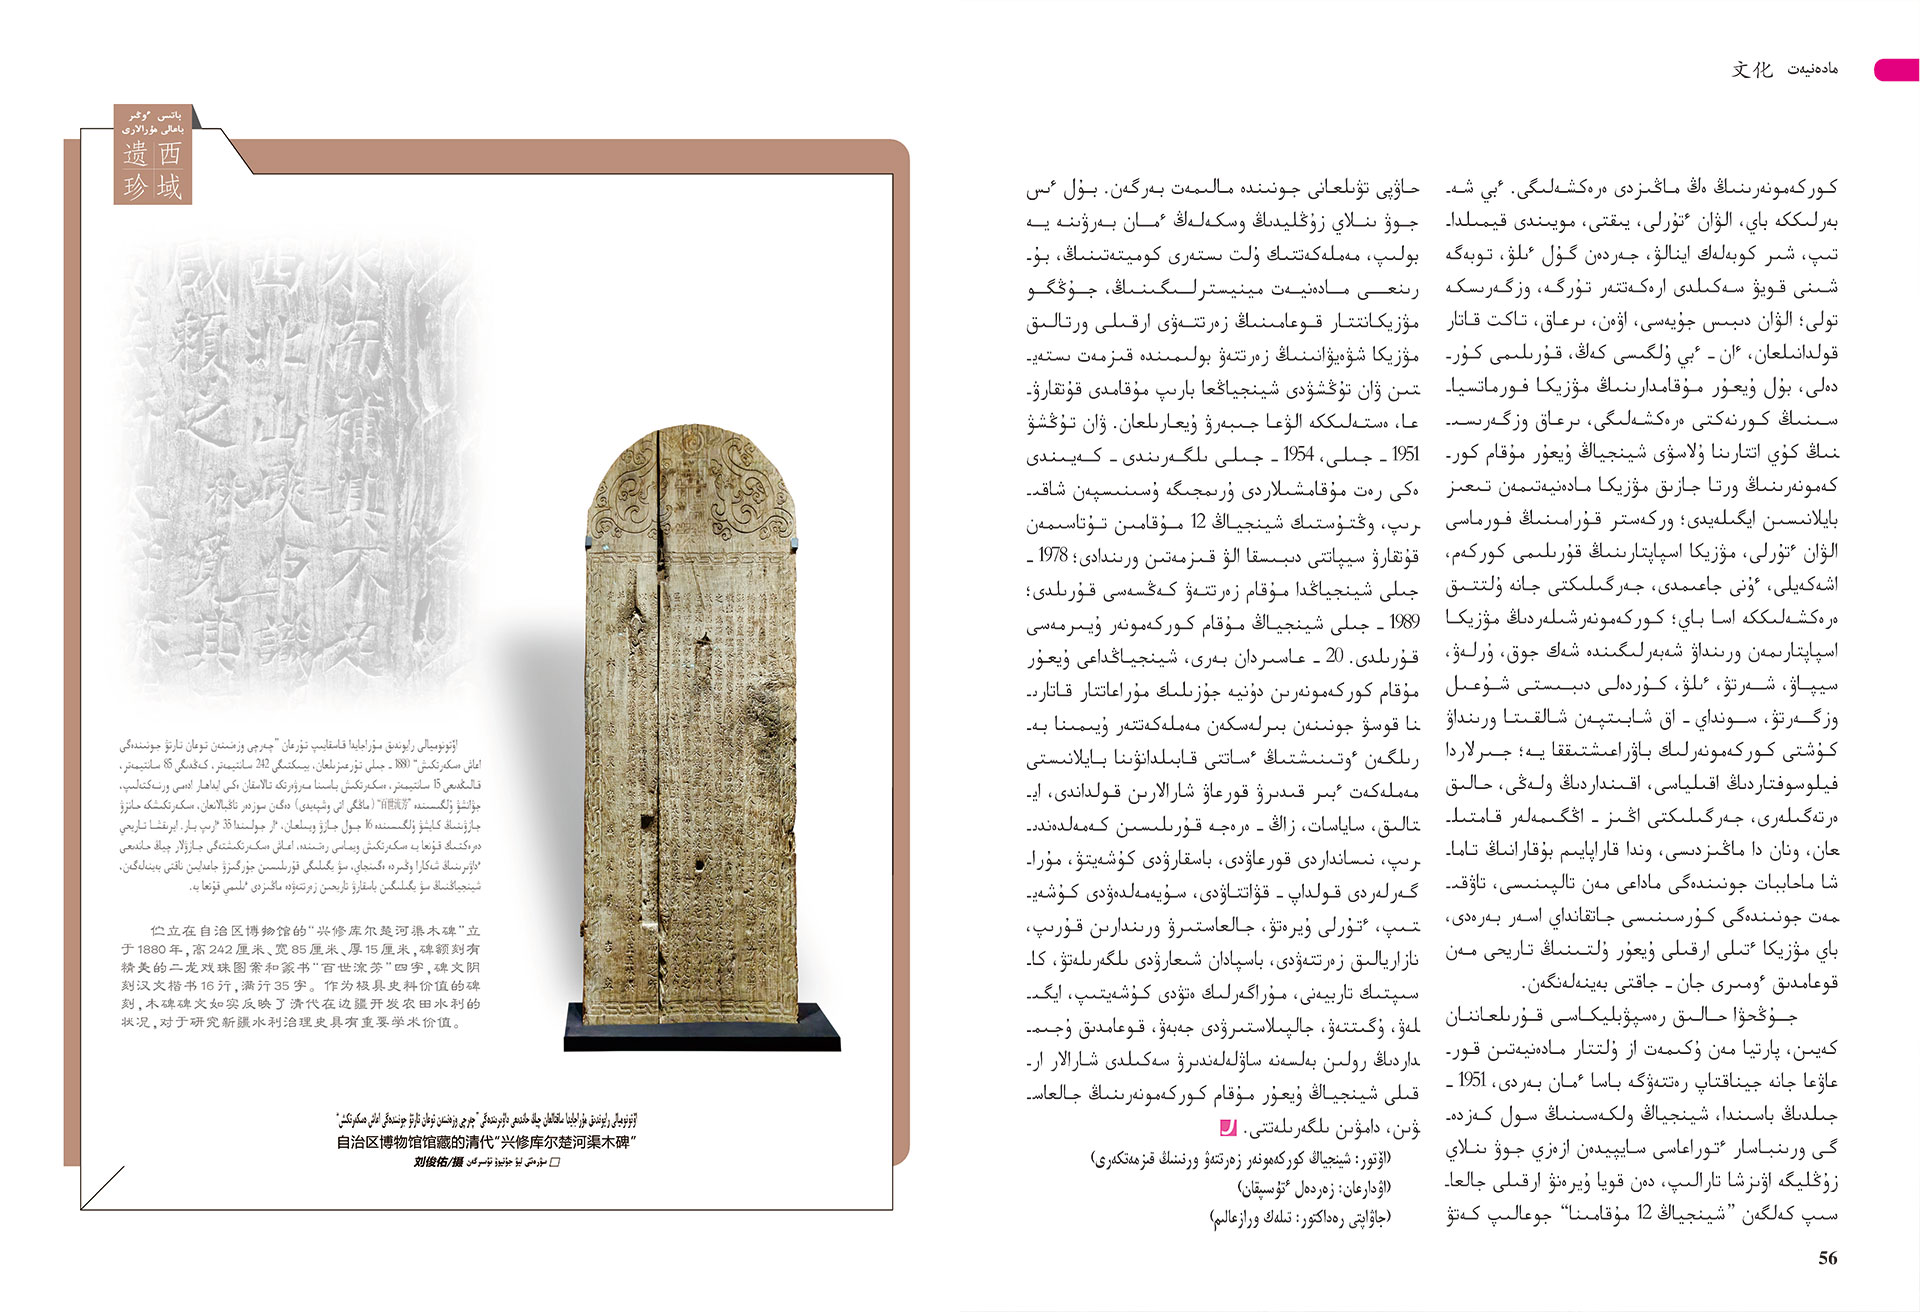 مادەنيەت 文化
كوركەمونەرىنىڭ ەڭ ماڭىزدى ەرەكشەلىگى. ٴبي شەـ
بەرلىككە باي، الۋان ٴتۇرلى، يىقتى، مويىندى قيمىلداـ
تىپ، شىر كوبەلەك اينالۋ، جەردەن گۇل ٴىلۋ، توبەگە
شىنى قويۋ سەكىلدى ارەكەتتەر تۇرگە، وزگەرىسكە
تولى؛ الۋان دىبىس جۇيەسى، اۋەن، ىرعاق، تاكت قاتار
قولدانىلعان، ٴان ـ ٴبي ۇلگىسى كەڭ، قۇرىلىمى كۇرـ
دەلى، بۇل ۇيعۇر مۇقامدارىنىڭ مۋزيكا فورماتسياـ
سىنىڭ كورنەكتى ەرەكشەلىگى، ىرعاق وزگەرىسىـ
نىڭ كۇي اتتارىنا ۇلاسۋى شينجياڭ ۇيعۇر مۇقام كورـ
كەمونەرىنىڭ ورتا جازىق مۋزيكا مادەنيەتىمەن تىعىز
بايلانىسىن ايگىلەيدى؛ وركەستر قۇرامىنىڭ فورماسى
الۋان ٴتۇرلى، مۋزيكا اسپاپتارىنىڭ قۇرىلىمى كوركەم،
اشەكەيلى، ٴۇنى جاعىمدى، جەرگىلىكتى جانە ۇلتتىق
ەرەكشەلىككە اسا باي؛ كوركەمونەرشىلەردىڭ مۋزيكا
اسپاپتارىمەن ورىنداۋ شەبەرلىگىندە شەك جوق، ۇرلەۋ،
سيپاۋ، شەرتۋ، ٴىلۋ، كۇردەلى دىبىستى شۇعىل
وزگەرتۋ، سونداي ـ اق شابىتپەن شالقىتا ورىنداۋ
كۇشتى كوركەمونەرلىك باۋراعىشتىققا يە؛ جىرلاردا
فيلوسوفتاردىڭ اقىلياسى، اقىنداردىڭ ولەڭى، حالىق
ەرتەگىلەرى، جەرگىلىكتى اڭىز ـ اڭگىمەلەر قامتىلـ
عان، ونان دا ماڭىزدىسى، وندا قاراپايىم بۇقارانىڭ تاماـ
شا ماحاببات جونىندەگى ماداعى مەن تالپىنىسى، تاۋقىـ
مەت جونىندەگى كۇرسىنىسى جاتقانداي اسەر بەرەدى،
باي مۋزيكا ٴتىلى ارقىلى ۇيعۇر ۇلتىنىڭ تاريحي مەن
قوعامدىق ٴومىرى جان ـ جاقتى بەينەلەنگەن.
جۇڭحۋا حالىق رەسپۋبليكاسى قۇرىلعاننان
كەيىن، پارتيا مەن ۇكىمەت از ۇلتتار مادەنيەتىن قورـ
عاۋعا جانە جيناقتاپ رەتتەۋگە باسا ٴمان بەردى، 1951 ـ
جىلدىڭ باسىندا، شينجياڭ ولكەسىنىڭ سول كەزدەـ
گى ورىنباسار ٴتوراعاسى سايپيدەن ازەزي جوۋ ىنلاي
زۇڭليگە اۋىزشا تارالىپ، دەن قويا ۇيرەنۋ ارقىلى جالعاـ
سىپ كەلگەن ”شينجياڭ 12 مۇقامىنا“ جوعالىپ كەتۋ
حاۋپى تۋىلعانى جونىندە مالىمەت بەرگەن. بۇل ٴىس
جوۋ ىنلاي زۇڭليدىڭ وسكەلەڭ ٴمان بەرۋىنە يە
بولىپ، مەملەكەتتىك ۇلت ىستەرى كوميتەتىنىڭ، بۇـ
رىنعى مادەنيەت مينيسترلىگىنىڭ، جۇڭگو
مۋزيكانتتار قوعامىنىڭ زەرتتەۋى ارقىلى ورتالىق
مۋزيكا شۋەيۋانىنىڭ زەرتتەۋ بولىمىندە قىزمەت ىستەيـ
تىن ۋان تۇڭشۋدى شينجياڭعا بارىپ مۇقامدى قۇتقارۋـ
عا، ەستەلىككە الۋعا جىبەرۋ ۇيعارىلعان. ۋان تۇڭشۋ
1951 ـ جىلى، 1954 ـ جىلى ىلگەرىندى ـ كەيىندى
ەكى رەت مۇقامشىلاردى ۇرىمجىگە ۇسىنىسپەن شاقىـ
رىپ، وڭتۇستىك شينجياڭ 12 مۇقامىن تۇتاسىمەن
قۇتقارۋ سيپاتتى دىبىسقا الۋ قىزمەتىن ورىندادى؛ 1978 ـ
جىلى شينجياڭدا مۇقام زەرتتەۋ كەڭسەسى قۇرىلدى؛
1989 ـ جىلى شينجياڭ مۇقام كوركەمونەر ۇيىرمەسى
قۇرىلدى. 20 ـ عاسىردان بەرى، شينجياڭداعى ۇيعۇر
مۇقام كوركەمونەرىن دۇنيە جۇزىلىك مۇراعاتتار قاتارىـ
نا قوسۋ جونىنەن بىرلەسكەن مەملەكەتتەر ۇيىمىنا بەـ
رىلگەن ٴوتىنىشتىڭ ٴساتتى قابىلدانۋىنا بايلانىستى
مەملەكەت ٴبىر قىدىرۋ قورعاۋ شارالارىن قولداندى، ايـ
تالىق، ساياسات، زاڭ ـ ەرەجە قۇرىلىسىن كەمەلدەندىـ
رىپ، نىسانداردى قورعاۋدى، باسقارۋدى كۇشەيتۋ، مۇراـ
گەرلەردى قولداپ ـ قۋاتتاۋدى، سۇيەمەلدەۋدى كۇشەيـ
تىپ، ٴتۇرلى ۇيرەتۋ، جالعاستىرۋ ورىندارىن قۇرىپ،
نازاريالىق زەرتتەۋدى، باسپادان شىعارۋدى ىلگەرىلەتۋ، كاـ
سىپتىك تاربيەنى، مۇراگەرلىك ەتۋدى كۇشەيتىپ، ايگىـ
لەۋ، ۇگىتتەۋ، جالپىلاستىرۋدى جەبەۋ، قوعامدىق ۇجىمـ
داردىڭ رولىن بەلسەنە ساۋلەلەندىرۋ سەكىلدى شارالار ارـ
قىلى شينجياڭ ۇيعۇر مۇقام كوركەمونەرىنىڭ جالعاسـ
ۋىن، دامۋىن ىلگەرىلەتتى.
(اۆتور: شينجياڭ كوركەمونەر زەرتتەۋ ورنىنىڭ قىزمەتكەرى)
(اۋدارعان: زەردەل ٴتۇسىپقان)
(جاۋاپتى رەداكتور: تىلەك ورازعالىم)
56
باتىس ٴوڭىر
باعالى مۇرالارى
西域
遗珍
اۆتونوميالى رايوندىق مۇراجايدا قاسقايىپ تۇرعان ”چەرچي وزەنىنەن توعان تارتۋ جونىندەگى
اعاش ەسكەرتكىش“ 1880 ـ جىلى تۇرعىزىلعان، بيىكتىگى 242 سانتيمەتر، كەڭدىگى 85 سانتيمەتر،
قالىڭدىعى 15 سانتيمەتر، ەسكەرتكىش باسىنا مەرۋەرتكە تالاسقان ەكى ايداھار ادەمى ورنەكتەلىپ،
جۋانشۋ ۇلگىسىندە ”百世流芳“ (ماڭگى اتى وشپەيدى) دەگەن سوزدەر تاڭبالانعان، ەسكەرتكىشكە حانزۋ
جازۋىنىڭ كايشۋ ۇلگىسىندە 16 جول جازۋ ويىلعان، ٴار جولىندا 35 ٴارىپ بار. ايرىقشا تاريحي
دەرەكتىك قۇنعا يە ەسكەرتكىش ويماسى رەتىندە، اعاش ەسكەرتكىشتەگى جازۋلار چيڭ حاندىعى
ٴداۋىرىنىڭ شەكارا وڭىردە ەگىنجاي، سۋ يگىلىگى قۇرىلىسىن جۇرگىزۋ جاعدايىن ناقتى بەينەلەگەن،
شينجياڭنىڭ سۋ يگىلىگىن باسقارۋ تاريحىن زەرتتەۋدە ماڭىزدى ٴىلىمي قۇنعا يە.
伫立在自治区博物馆的“兴修库尔楚河渠木碑”立
于1880年，高242厘米、宽85厘米、厚15厘米，碑额刻有
精美的二龙戏珠图案和篆书“百世流芳”四字，碑文阴
刻汉文楷书16行，满行35字。作为极具史料价值的碑
刻，木碑碑文如实反映了清代在边疆开发农田水利的
状况，对于研究新疆水利治理史具有重要学术价值。
اۆتونوميالى رايوندىق مۇراجايدا ساقتالعان چيڭ حاندىعى داۋىرىندەگى ”چەرچي وزەنىنەن توعان تارتۋ جونىندەگى اعاش ەسكەرتكىش“
自治区博物馆馆藏的清代“兴修库尔楚河渠木碑”
□ سۋرەتتى ليۋ جۇنيوۋ تۇسىرگەن 刘俊佑/摄